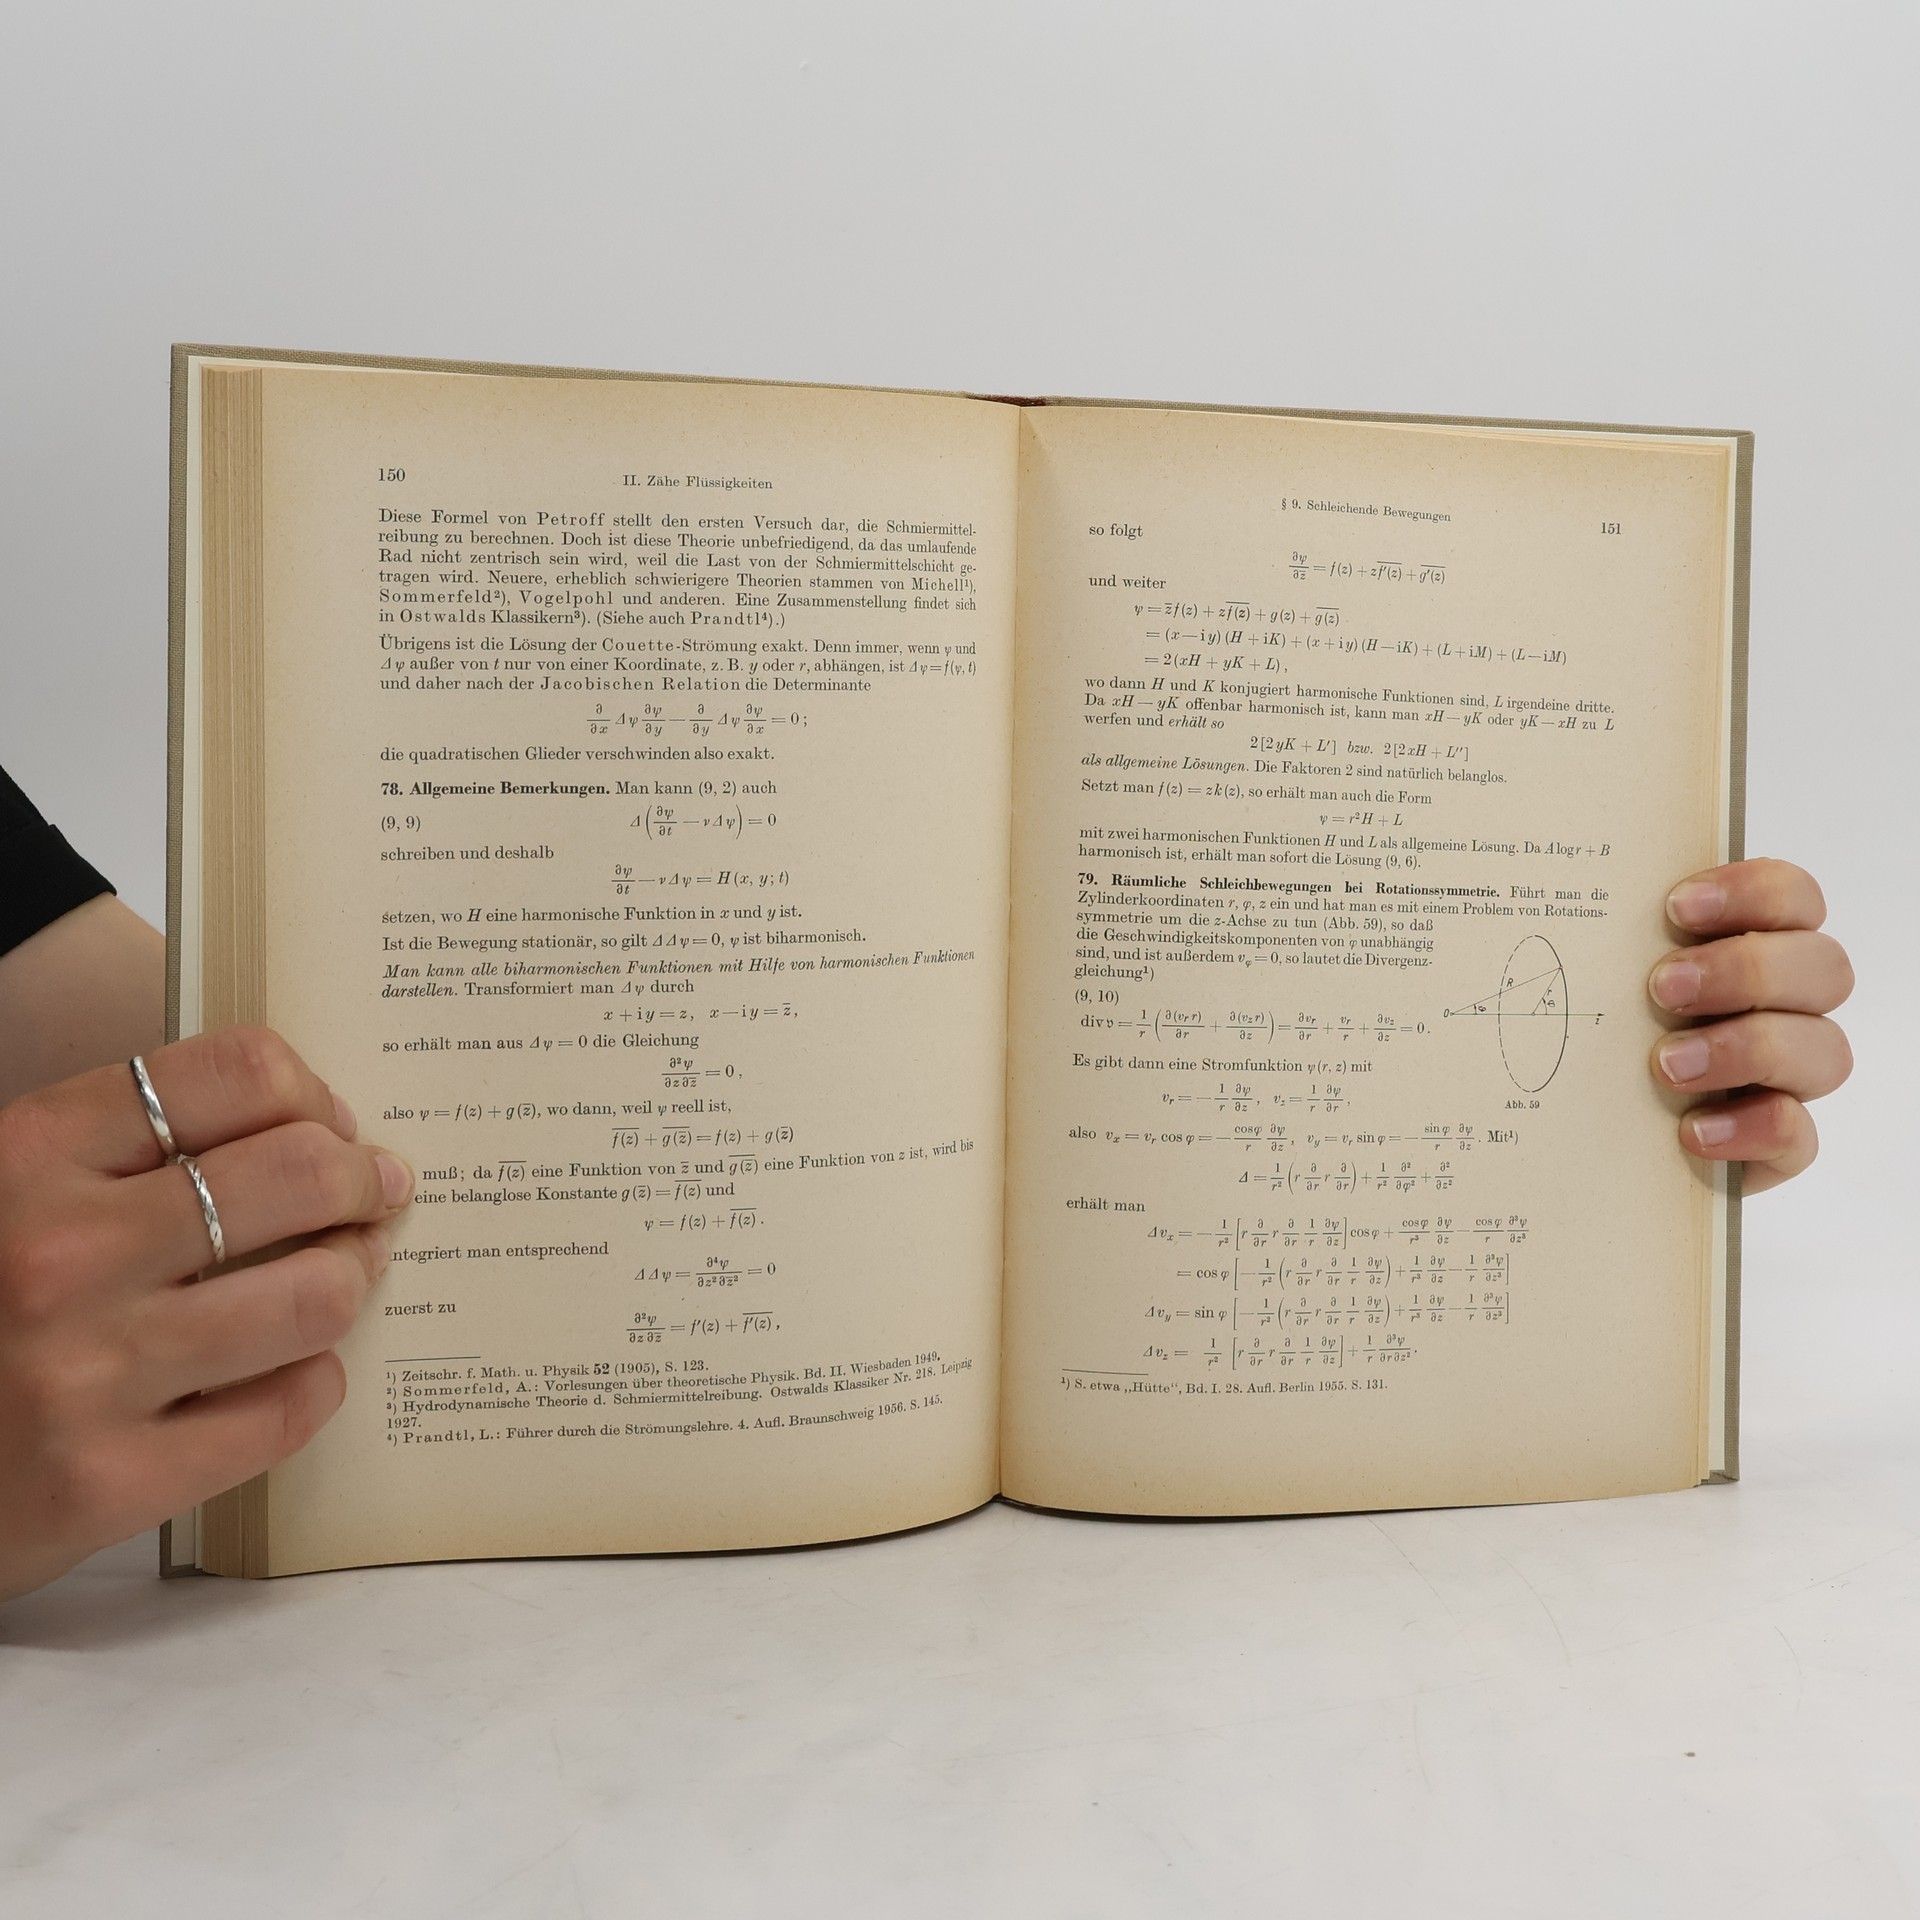 150
II. Zähe Flüssigkeiten
Diese Formel von Petroff stellt den ersten Versuch dar, die Schmiermittel-
reibung zu berechnen. Doch ist diese Theorie unbefriedigend, da das umlaufende
Rad nicht zentrisch sein wird, weil die Last von der Schmiermittelschicht ge-
tragen wird. Neuere, erheblich schwierigere Theorien stammen von Michell¹),
Sommerfeld²), Vogelpohl und anderen. Eine Zusammenstellung findet sich
in Ostwalds Klassikern³). (Siehe auch Prandtl⁴).)
Übrigens ist die Lösung der Couette-Strömung exakt. Denn immer, wenn ψ und
Δψ außer von t nur von einer Koordinate, z. B. y oder r, abhängen, ist Δψ = f(ψ, t)
und daher nach der Jacobischen Relation die Determinante
∂/∂x Δψ ∂ψ/∂y − ∂/∂y Δψ ∂ψ/∂x = 0;
die quadratischen Glieder verschwinden also exakt.
78. Allgemeine Bemerkungen. Man kann (9, 2) auch
(9, 9) Δ(∂ψ/∂t − νΔψ) = 0
schreiben und deshalb
∂ψ/∂t − νΔψ = H(x, y; t)
setzen, wo H eine harmonische Funktion in x und y ist.
Ist die Bewegung stationär, so gilt ΔΔψ = 0, ψ ist biharmonisch.
Man kann alle biharmonischen Funktionen mit Hilfe von harmonischen Funktionen
darstellen. Transformiert man Δψ durch
x + iy = z, x − iy = z̄,
so erhält man aus Δψ = 0 die Gleichung
∂²ψ/∂z∂z̄ = 0,
also ψ = f(z) + g(z̄), wo dann, weil ψ reell ist,
\overline{f(z)} + \overline{g(z̄)} = f(z) + g(z̄)
muß; da \overline{f(z)} eine Funktion von z̄ und \overline{g(z̄)} eine Funktion von z ist, wird bis
eine belanglose Konstante g(z̄) = \overline{f(z)} und
ψ = f(z) + \overline{f(z)}.
ntegriert man entsprechend
ΔΔψ = ∂⁴ψ/∂z²∂z̄² = 0
zuerst zu
∂²ψ/∂z∂z̄ = f′(z) + \overline{f′(z)},
¹) Zeitschr. f. Math. u. Physik 52 (1905), S. 123.
²) Sommerfeld, A.: Vorlesungen über theoretische Physik. Bd. II. Wiesbaden 1949.
³) Hydrodynamische Theorie d. Schmiermittelreibung. Ostwalds Klassiker Nr. 218. Leipzig
1927.
⁴) Prandtl, L.: Führer durch die Strömungslehre. 4. Aufl. Braunschweig 1956. S. 145.
§ 9. Schleichende Bewegungen
151
so folgt
∂ψ/∂z̄ = f(z) + z\overline{f′(z)} + \overline{g′(z)}
und weiter
ψ = z̄f(z) + z\overline{f(z)} + g(z) + \overline{g(z)}
= (x − iy)(H + iK) + (x + iy)(H − iK) + (L + iM) + (L − iM)
= 2(xH + yK + L),
wo dann H und K konjugiert harmonische Funktionen sind, L irgendeine dritte.
Da xH − yK offenbar harmonisch ist, kann man xH − yK oder yK − xH zu L
werfen und erhält so
2[2yK + L′] bzw. 2[2xH + L″]
als allgemeine Lösungen. Die Faktoren 2 sind natürlich belanglos.
Setzt man f(z) = zk(z), so erhält man auch die Form
ψ = r²H + L
mit zwei harmonischen Funktionen H und L als allgemeine Lösung. Da A log r + B
harmonisch ist, erhält man sofort die Lösung (9, 6).
79. Räumliche Schleichbewegungen bei Rotationssymmetrie. Führt man die
Zylinderkoordinaten r, φ, z ein und hat man es mit einem Problem von Rotations-
symmetrie um die z-Achse zu tun (Abb. 59), so daß
die Geschwindigkeitskomponenten von φ unabhängig
sind, und ist außerdem v_φ = 0, so lautet die Divergenz-
gleichung¹)
(9, 10)
div 𝔳 = 1/r (∂(v_r r)/∂r + ∂(v_z r)/∂z) = ∂v_r/∂r + v_r/r + ∂v_z/∂z = 0.
0 R r z
Abb. 59
Es gibt dann eine Stromfunktion ψ(r, z) mit
v_r = −1/r ∂ψ/∂z, v_z = 1/r ∂ψ/∂r,
also v_x = v_r cos φ = −cos φ/r ∂ψ/∂z, v_y = v_r sin φ = −sin φ/r ∂ψ/∂z. Mit¹)
Δ = 1/r² (r ∂/∂r r ∂/∂r) + 1/r² ∂²/∂φ² + ∂²/∂z²
erhält man
Δv_x = −1/r² [r ∂/∂r r ∂/∂r 1/r ∂ψ/∂z] cos φ + cos φ/r³ ∂ψ/∂z − cos φ/r ∂³ψ/∂z³
= cos φ [−1/r² (r ∂/∂r r ∂/∂r 1/r ∂ψ/∂z) + 1/r³ ∂ψ/∂z − 1/r ∂³ψ/∂z³]
Δv_y = sin φ [−1/r² (r ∂/∂r r ∂/∂r 1/r ∂ψ/∂z) + 1/r³ ∂ψ/∂z − 1/r ∂³ψ/∂z³]
Δv_z = 1/r² [r ∂/∂r r ∂/∂r 1/r ∂ψ/∂z] + 1/r ∂³ψ/∂r∂z².
¹) S. etwa „Hütte“, Bd. I. 28. Aufl. Berlin 1955. S. 131.